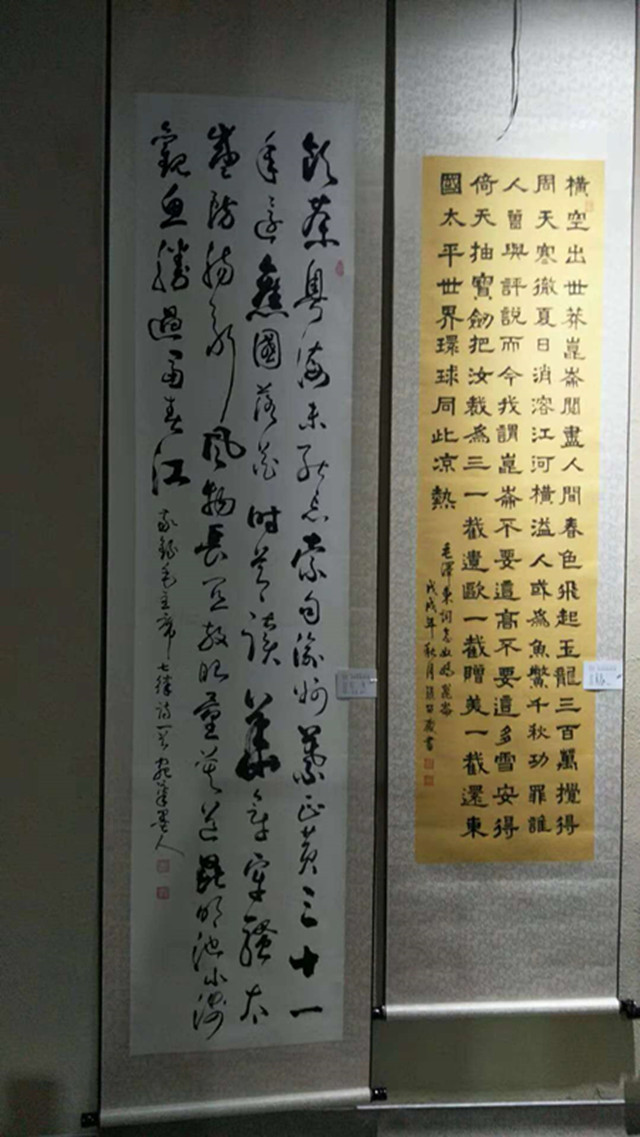 橫空出世莽崑崙閱盡人間春色飛起玉龍三百萬攪得
周天寒徹夏日消溶江河橫溢人或為魚鱉千秋功罪誰
人曾與評說而今我謂崑崙不要這高不要這多雪安得
倚天抽寶劍把汝裁為三一截遺歐一截贈美一截還東
國太平世界環球同此凉熱
毛澤東詞念奴嬌崑崙
戊戌年秋月
飲茶粵海未能忘索句渝州葉正黃三十一
年還舊國落花時節讀華章牢騷太
盛防腸斷風物長宜放眼量莫道昆明池水淺
觀魚勝過富春江
敬錄毛主席七律詩一首